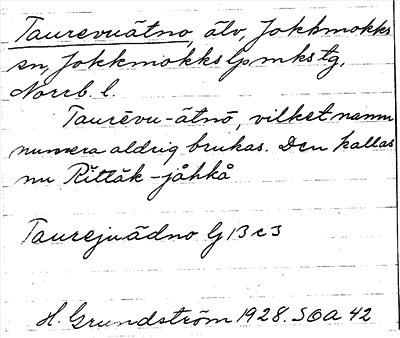 Taurevuätno, älv, Jokkmokks
sn, Jokkmokks lpmks tg,
Norrb. l.
Taurēvu-ätnō, vilket namn
numera aldrig brukas. Den kallas
nu Rittāk-jåhkå
Taurejuädno G 13 c 3
H. Grundström 1928. SOa 42